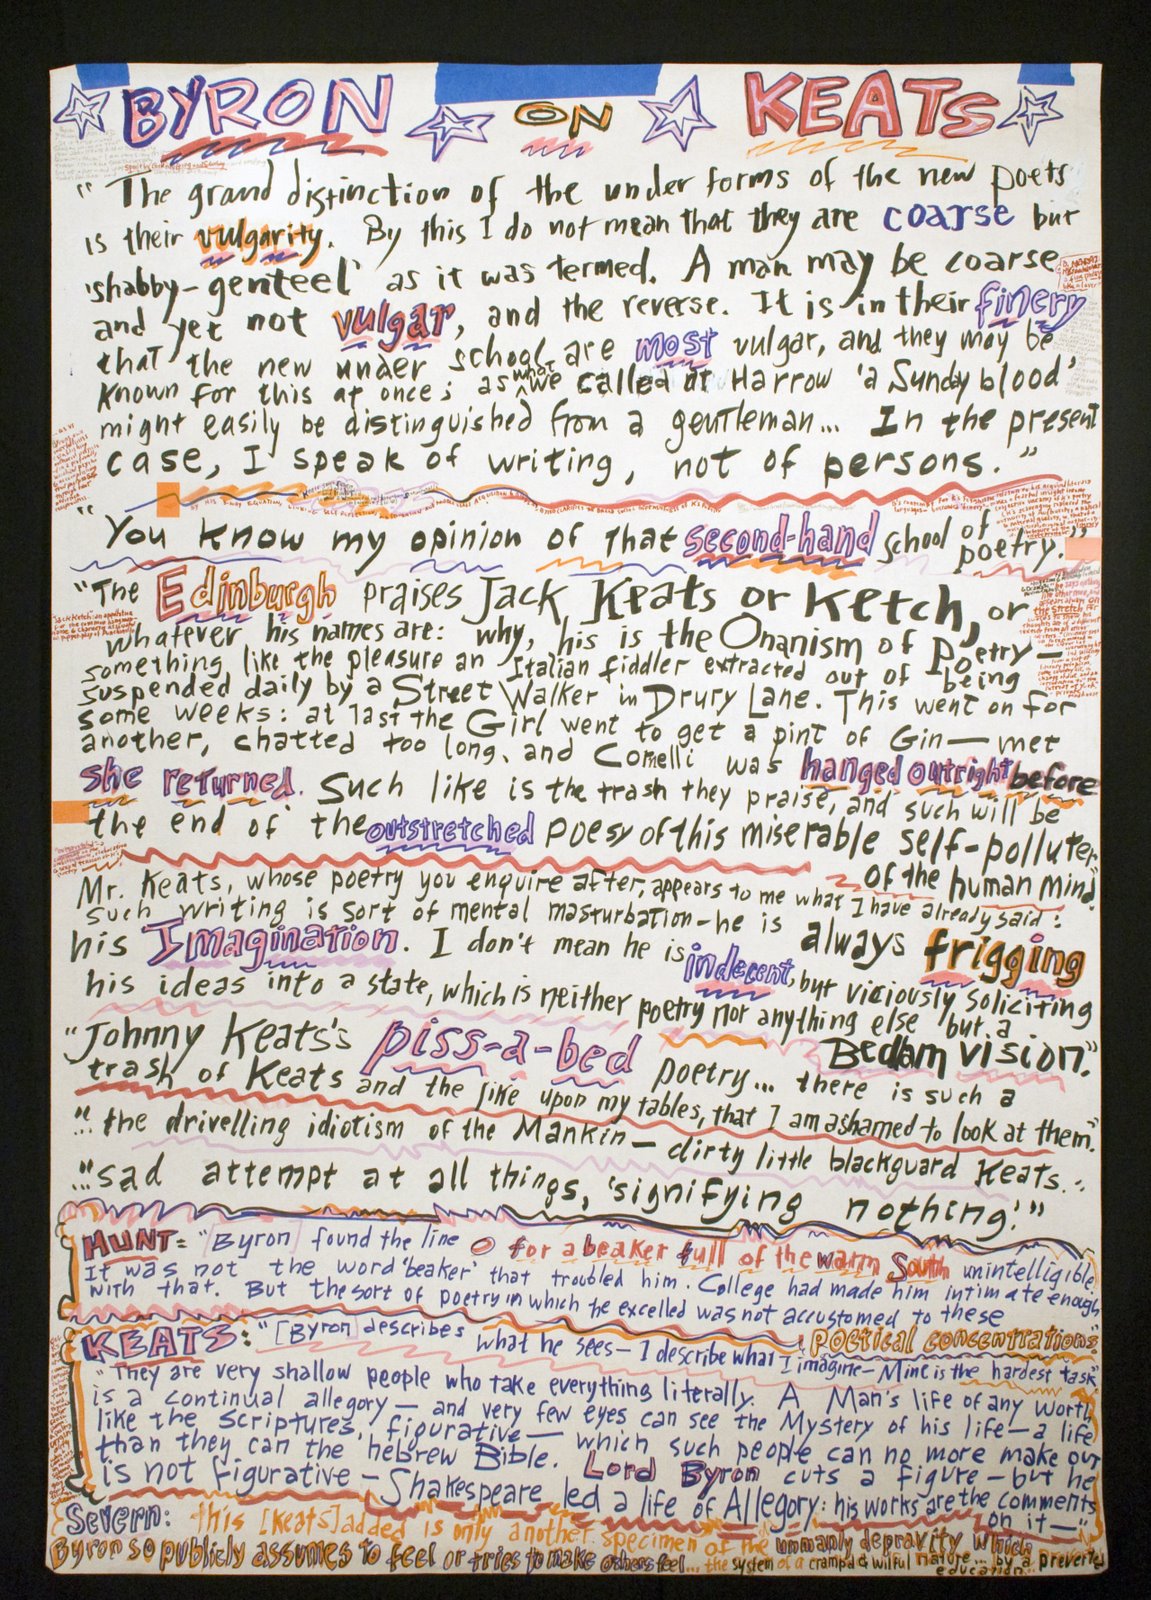 BYRON ON KEATS
"The grand distinction of the under forms of the new poets
is their vulgarity. By this I do not mean that they are coarse but
'shabby-genteel' as it was termed. A man may be coarse
and yet not vulgar, and the reverse. It is in their finery
that the new under school are most vulgar, and they may be
known for this at once; as what we called at Harrow 'a Sunday blood'
might easily be distinguished from a gentleman... In the present
case, I speak of writing, not of persons."
"You know my opinion of that second-hand school of poetry."
"The Edinburgh praises Jack Keats or Ketch, or
whatever his names are: why, his is the Onanism of Poetry—
something like the pleasure an Italian fiddler extracted out of being
suspended daily by a Street Walker in Drury Lane. This went on for
some weeks: at last the Girl went to get a pint of Gin— met
another, chatted too long, and Cornelli was hanged outright before
she returned. Such like is the trash they praise, and such will be
the end of the outstretched poesy of this miserable self-polluter
of the human mind."
Mr. Keats, whose poetry you enquire after, appears to me what I have already said:
such writing is sort of mental masturbation—he is always frigging
his Imagination. I don't mean he is indecent, but viciously soliciting
his ideas into a state, which is neither poetry nor anything else but a
Bedlam vision."
"Johnny Keats's piss-a-bed poetry... there is such a
trash of Keats and the like upon my tables, that I am ashamed to look at them."
"... the drivelling idiotism of the Mankin— dirty little blackguard Keats..."
"...sad attempt at all things, 'signifying nothing.'"
HUNT: "[Byron] found the line O for a beaker full of the warm South unintelligible
It was not the word 'beaker' that troubled him. College had made him intimate enough
with that. But the sort of poetry in which he excelled was not accustomed to these
poetical concentrations."
KEATS: "[Byron] describes what he sees— I describe what I imagine— Mine is the hardest task"
"They are very shallow people who take everything literally. A Man's life of any worth
is a continual allegory— and very few eyes can see the Mystery of his life— a life
like the scriptures, figurative— which such people can no more make out
than they can the hebrew Bible. Lord Byron cuts a figure— but he
is not figurative— Shakespeare led a life of Allegory: his works are the comments
on it—"
Severn: this [Keats] added is only another specimen of the unmanly depravity which
Byron so publicly assumes to feel or tries to make others feel... the system of a cramp'd & wilful nature... by a preverted
education...